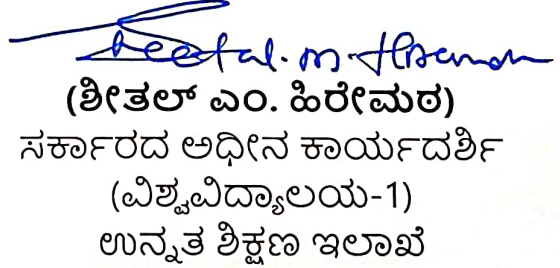 Sheetal. M. Hiremath
(ಶೀತಲ್ ಎಂ. ಹಿರೇಮಠ)
ಸರ್ಕಾರದ ಅಧೀನ ಕಾರ್ಯದರ್ಶಿ
(ವಿಶ್ವವಿದ್ಯಾಲಯ-1)
ಉನ್ನತ ಶಿಕ್ಷಣ ಇಲಾಖೆ